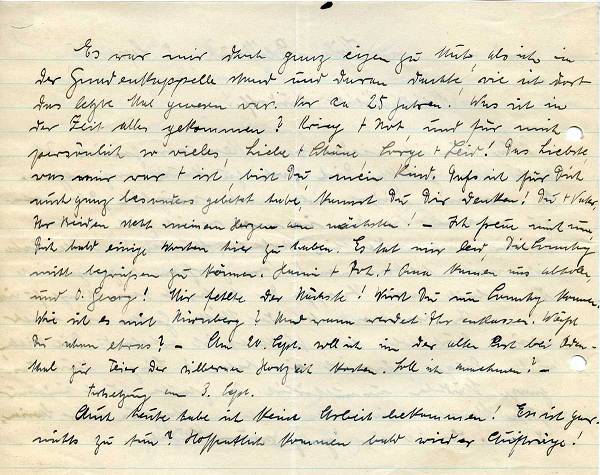 Es war mir doch ganz eigen zu Mute, als ich in
der Gnadenkappelle stand und daran dachte, wie ich dort
das letzte Mal gewesen war. Vor ca 25 Jahren! Was ist in
der Zeit alles gekommen? Krieg + Not, und für mich
persönlich so vieles, Liebe + Schöne, Sorge + Leid! Das Liebste
was mir war + ist, bist Du mein Kind. Daß ich für Dich
auch ganz besonders gebetet habe, kannst Du Dir denken! Du + Vater,
Ihr beiden steht meinem Herzen am nächsten! – Ich freue mich nun
Dich bald einige Wochen hier zu haben. Es tat mir leid, Dich Sonntag
nicht begrüßen zu können. Hanni + + Anna kamen uns abholen
und O. Georg! Mir fehlte der Nächste! Wirst Du nun Sonntag kommen.
Wie ist es mit Nürnberg? Und wann werdet Ihr entlassen. Weißt
Du schon etwas? – Am 20. Sept. soll ich in der alten Post bei
mal zur Feier der silbernen Hochzeit kochen. Soll ich annehmen? –
Fortsetzung am 3. Sept.
Auch heute habe ich keine Arbeit bekommen! Es ist gar
nichts zu tun? Hoffentlich kommen bald wieder Aufträge!